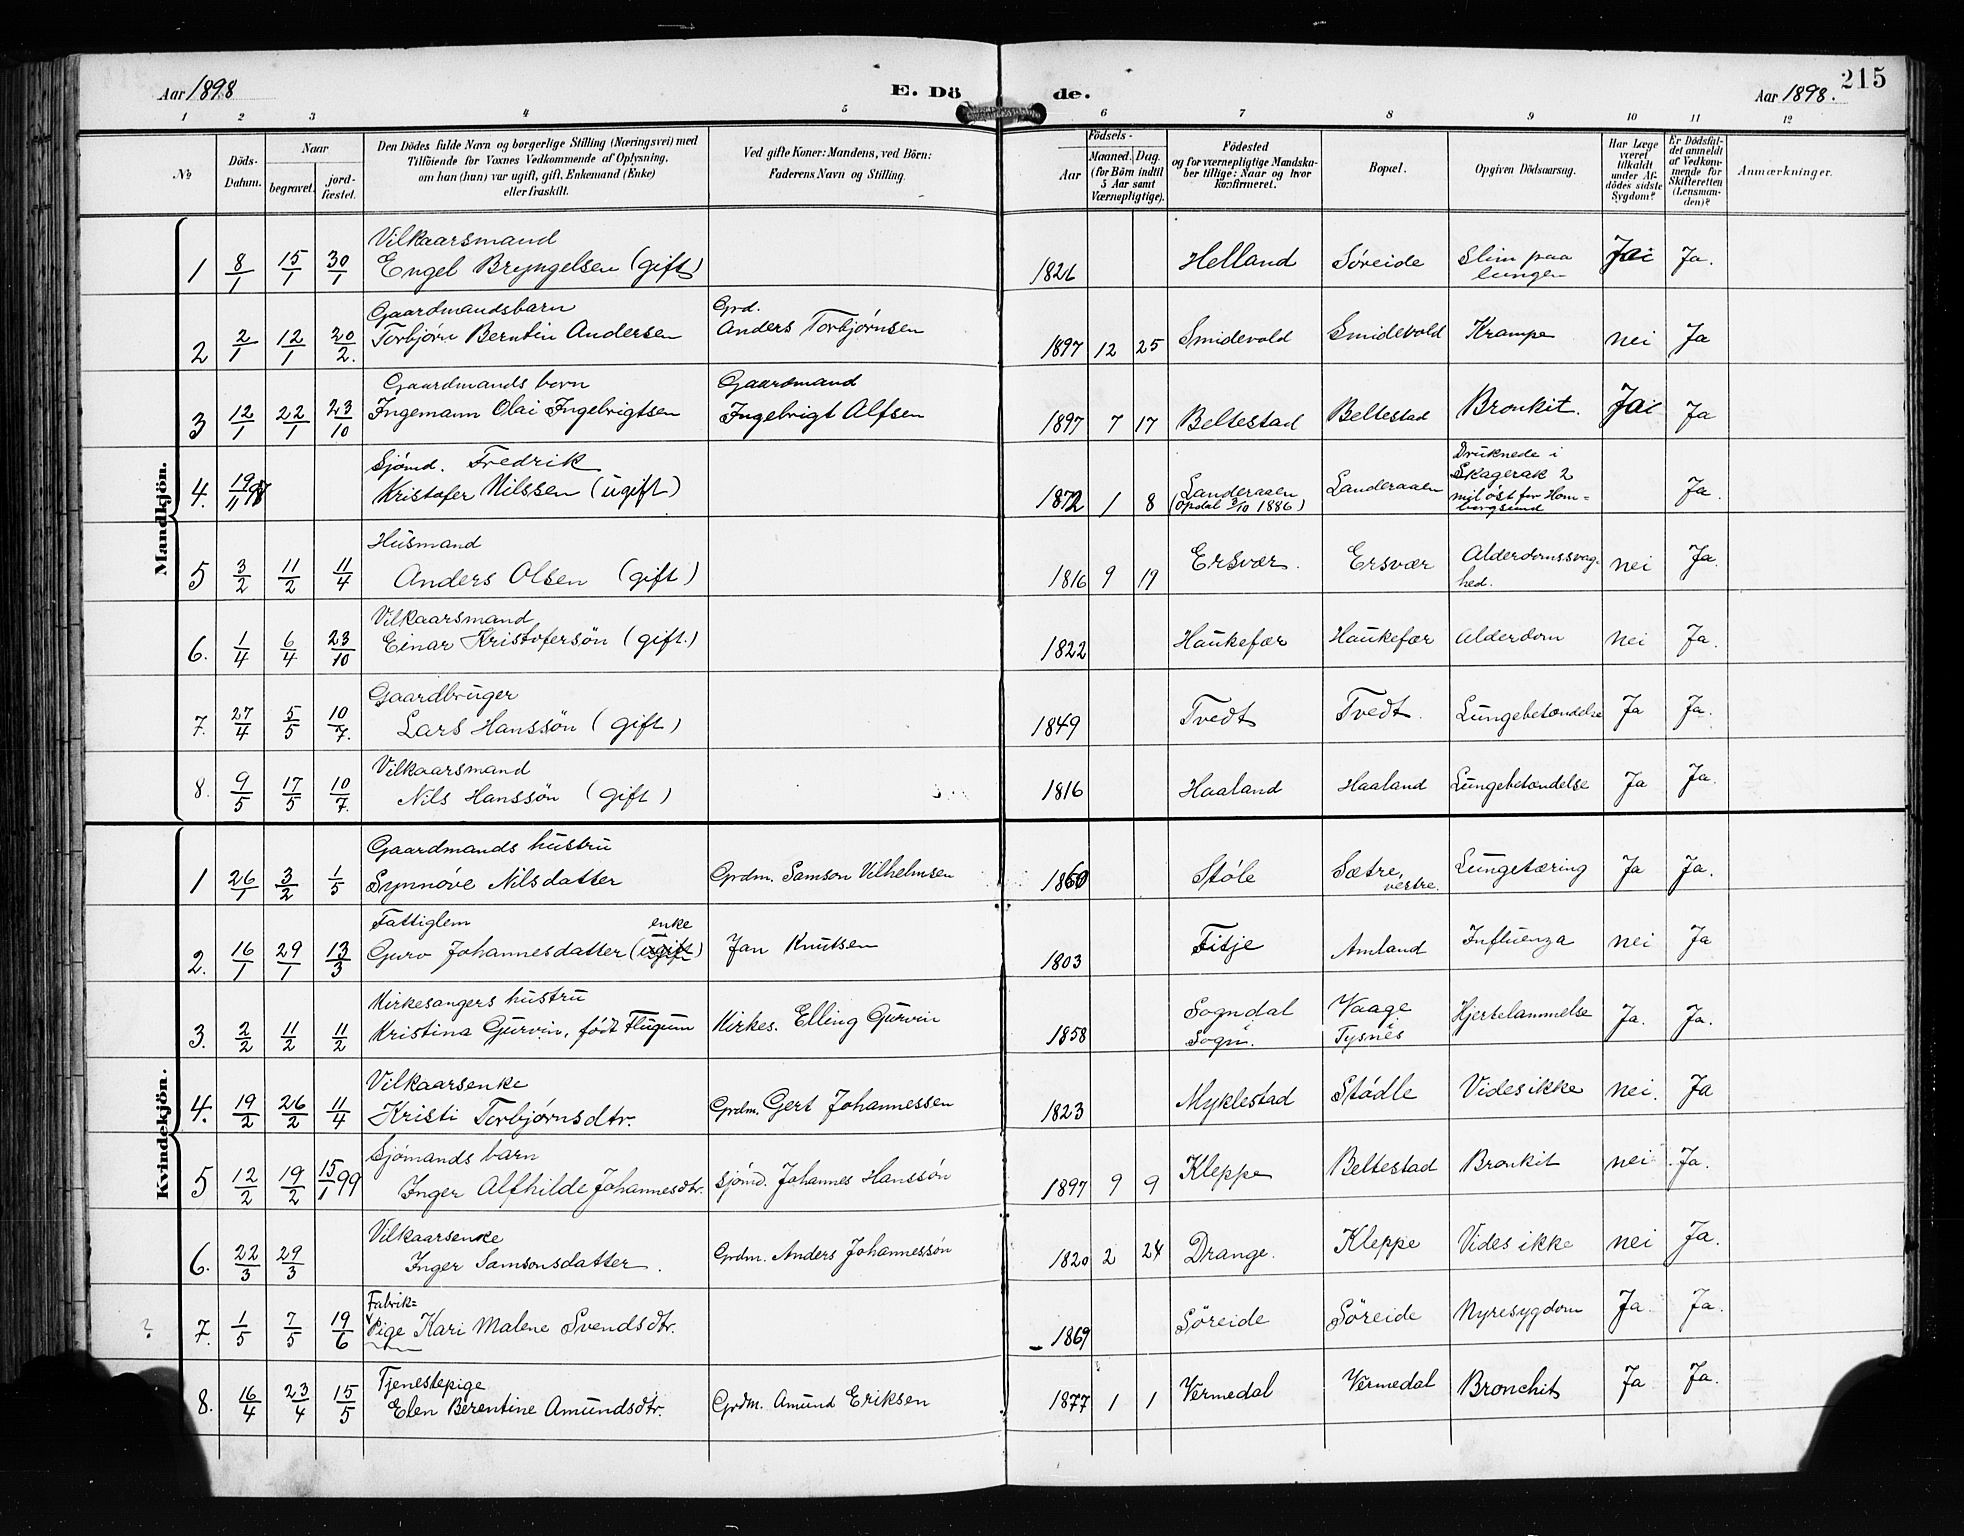 Aar 1898 E. Dö de. Aar 1898. 215
1 2 3 4 5 6 7 8 9 10 11 12
№ Döds-Datum. Naar begravet. jord-fæstet. Den Dödes fulde Navn og borgerlige Stilling (Næringsvei) med Tilföiende for Voxnes Vedkommende af Oplysning, om han (hun) var ugift, gift, Enkemand (Enke) eller fraskilt. Ved gifte Koner: Mandens, ved Börn: Faderens Navn og Stilling. Födsels- Aar Maaned. Dag. (for Börn indtil 5 Aar samt Værnepligtige). Födested og for værnepligtige Mandska-ber tillige: Naar og hvor konfirmeret. Bopæl. Opgiven Dödsaarsag. Har Læge været tilkaldt under Af-dödes sidste Sygdom? Er Dödsfal-det anmeldt af Vedkom-mende for Skifteretten (Lensman-den)? Anmærkninger.
Mandkjön.
Vilkaarsmand
1 8/1 15/1 30/1 Engel Bryngelsen (gift) 1826 Helland Søreide Slim paa lungen Ja Ja.
Gaardmandsbarn Grd.
2 2/1 12/1 20/2. Torbjørn Berntin Andersen Anders Torbjørnsen 1897 12 25 Smidevold Smidevold Krampe nei Ja
Gaardmands born Gaardmand
3 12/1 22/1 23/10 Ingemann Olai Ingebrigtsen Ingebrigt Alfsen 1897 7 17 Beltestad Beltestad Bronkit. Ja Ja
Sjømd. Fredrik
4. 19/11 97 Kristofer Nilssen (ugift) 1872 1 8 Landeraaen (Opdal 3/10 1886) Landeraaen Druknede i Skagerak 2 mil øst for Hom=borgsund Ja.
Husmand
5 3/2 11/2 11/4 Anders Olsen (gift) 1816 9 19 Ersvær. Ersvær Alderdomssvag-hed. nei Ja.
Vilkaarsmand
6. 1/4 6/4 23/10 Einar Kristofersøn (gift.) 1822 Haukefær Haukefær Alderdom nei Ja.
Gaardbruger
7. 27/4 5/5 10/7. Lars Hanssøn (gift) 1849 Tvedt Tvedt. Lungebetændelse Ja Ja.
Vilkaarsmand
8. 9/5 17/5 10/7. Nils Hanssøn (gift) 1816 Haaland Haaland Lungebetændelse Ja Ja.
Kvindekjön.
Gaardmands hustru
1 26/1 3/2 1/5 Synnøve Nilsdatter Grdm. Samson Vilhelmsen 1860 Støle Sætre, vestre. Lungetæring Ja Ja.
Fattiglem enke
2. 16/1 29/1 13/3 Guro Johannesdatter (ugift) Jan Knutsen 1803 Fitje Amland Influenza nei Ja
Kirkesangers hustru
3. 2/2 11/2 11/2 Kristina Gurvin, født Flugum Kirkes. Elling Gurvin 1858 Sogndal Sogn. Vaage Tysnes Hjertelammelse Ja. Ja.
Vilkaarsenke
4. 19/2 26/2 11/4 Kristi Torbjørnsdtr. Grdm. Gert Johannessen 1823 Myklestad Stødle Vides ikke nei. Ja
Sjømands barn
5 12/2 19/2 15/1 99 Inger Alfhilde Johannesdtr. Sjømd. Johannes Hanssøn 1897 9 9 Kleppe Beltestad Bronkit nei Ja.
Vilkaarsenke
6. 22/3 29/3 Inger Samsonsdatter. Grdm. Anders Johannessøn 1820 2 24 Drange. Kleppe Vides ikke nei Ja.
Fabrik=
? 7. 1/5 7/5 19/6 Pige Kari Malene Svendsdtr. 1869 Søreide Søreide Nyresygdom Ja Ja.
Tjenestepige
8. 16/4 23/4 15/5 Elen Berentine Amundsdtr. Grdm. Amund Eriksen 1877 1 1 Vermedal Vermedal Bronchit Ja Ja.